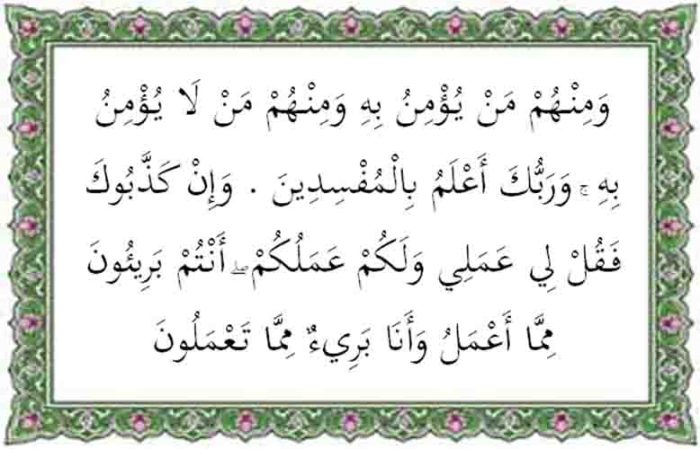 وَمِنْهُمْ مَنْ يُؤْمِنُ بِهِ وَمِنْهُمْ مَنْ لَا يُؤْمِنُ
بِهِ ۚ وَرَبُّكَ أَعْلَمُ بِالْمُفْسِدِينَ . وَإِنْ كَذَّبُوكَ
فَقُلْ لِي عَمَلِي وَلَكُمْ عَمَلُكُمْ ۖ أَنْتُمْ بَرِيئُونَ
مِمَّا أَعْمَلُ وَأَنَا بَرِيءٌ مِمَّا تَعْمَلُونَ